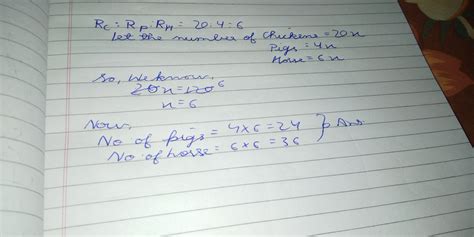 R_C : R_P : R_H = 20 : 4 : 6
let the number of chickens = 20x
Pigs = 4x
Horse = 6x
So, We know,
20x = 120 6
x = 6
Now,
No of pigs = 4×6 = 24
No of horse = 6×6 = 36 } Ans